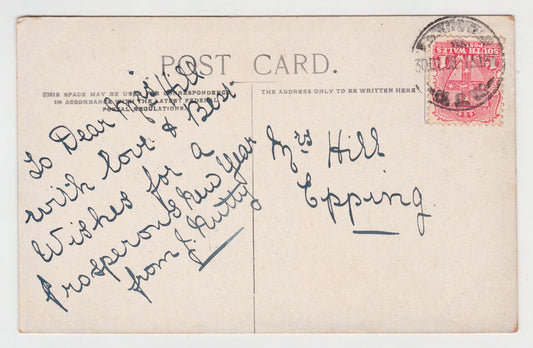 POST CARD.
THIS SPACE MAY BE USED FOR CORRESPONDENCE
IN ACCORDANCE WITH THE LATEST FEDERAL
POSTAL REGULATIONS.
THE ADDRESS ONLY TO BE WRITTEN HERE
To Dear Mrs Hill
with love & Best
Wishes for a
Prosperous New Year
from J. Nutty
Mrs Hill
Epping
SOUTH WALES